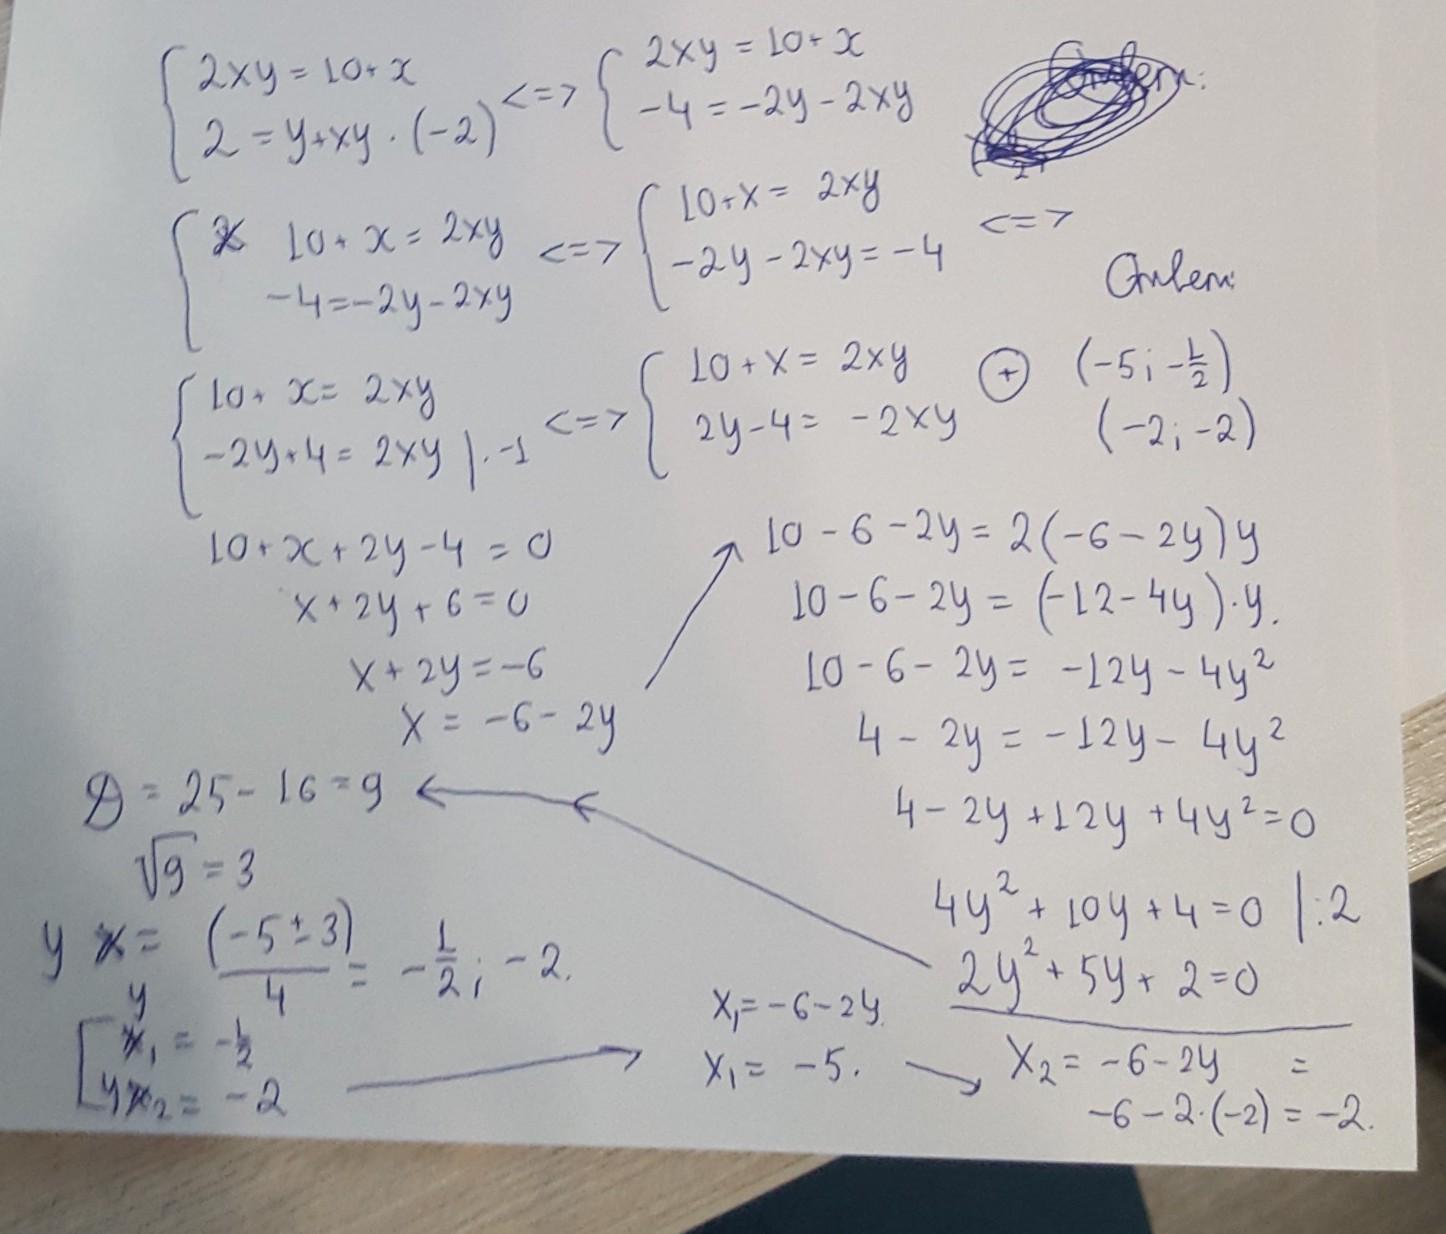 2xy = 10 + x <=> 2xy = 10 + x
2 = y + xy · (-2) -4 = -2y - 2xy
10 + x = 2xy <=> 10 + x = 2xy <=>
-4 = -2y - 2xy -2y - 2xy = -4
Ответ:
10 + x = 2xy <=> 10 + x = 2xy ⊕ (-5; -1/2)
-2y + 4 = 2xy | · -1 2y - 4 = -2xy (-2; -2)
10 + x + 2y - 4 = 0
x + 2y + 6 = 0
x + 2y = -6
x = -6 - 2y
10 - 6 - 2y = 2(-6 - 2y)y
10 - 6 - 2y = (-12 - 4y) · y.
10 - 6 - 2y = -12y - 4y²
4 - 2y = -12y - 4y²
4 - 2y + 12y + 4y² = 0
4y² + 10y + 4 = 0 | : 2
2y² + 5y + 2 = 0
D = 25 - 16 = 9
√9 = 3
y = (-5 ± 3)/4 = -1/2; -2.
y₁ = -1/2
y₂ = -2
x₁ = -6 - 2y
x₁ = -5.
x₂ = -6 - 2y =
-6 - 2 · (-2) = -2.